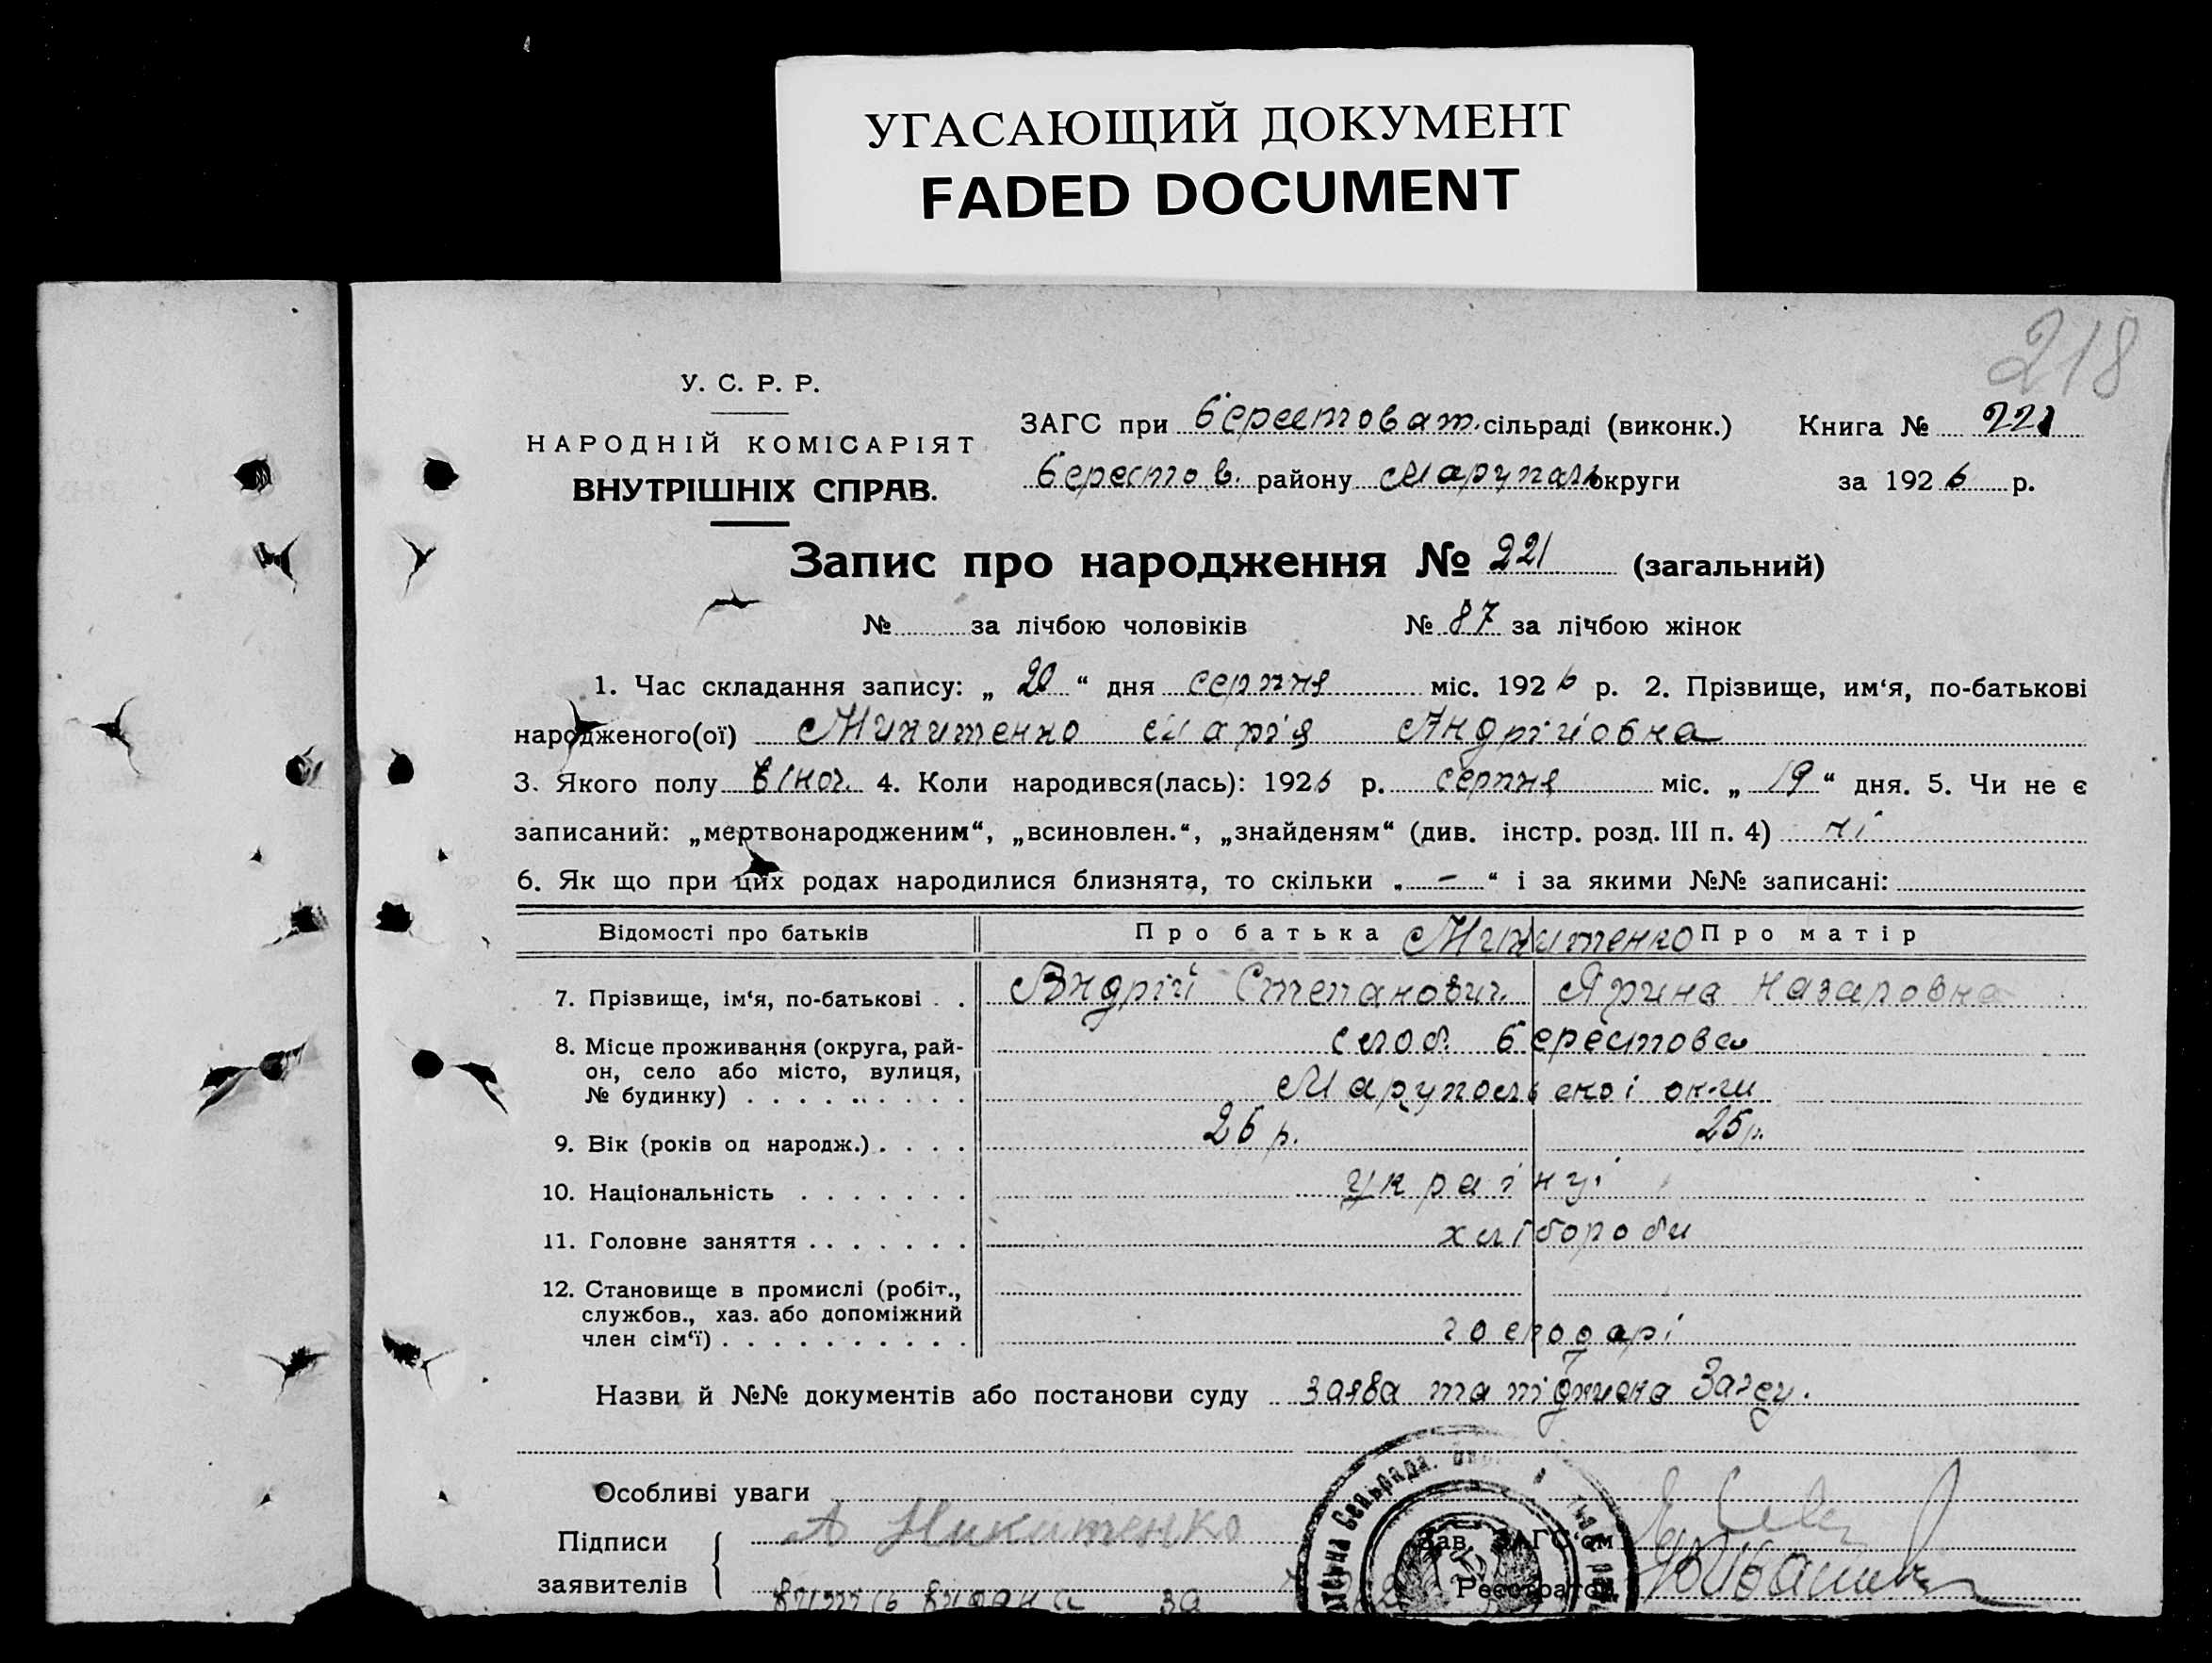 УГАСАЮЩИЙ ДОКУМЕНТ
FADED DOCUMENT
218
У. С. Р. Р.
НАРОДНІЙ КОМІСАРІЯТ
ВНУТРІШНІХ СПРАВ.
ЗАГС при Берестоват. сільраді (виконк.) Книга № 221
Берестов. району Маруполь округи за 1926 р.
Запис про народження № 221 (загальний)
№ за лічбою чоловіків № 87 за лічбою жінок
1. Час складання запису: „ 20 “ дня серпня міс. 1926 р. 2. Прізвище, им‘я, по-батькові
народженого(ої) Микитенко Марія Андріїовна
3. Якого полу жіноч. 4. Коли народився(лась): 1926 р. серпня міс. „ 19 “ дня. 5. Чи не є
записаний: „мертвонародженим“, „всиновлен.“, „знайденям“ (див. інстр. розд. III п. 4) ні
6. Як що при цих родах народилися близнята, то скільки „ - “ і за якими №№ записані:
Відомості про батьків Про батька Микитенко Про матір
7. Прізвище, ім‘я, по-батькові Андрій Степанович Ярина Назаровна
8. Місце проживання (округа, рай- слоб. Берестова
он, село або місто, вулиця,
№ будинку) Марупольскоі окр-и
9. Вік (років од народж.) 26 р. 25 р.
10. Національність українці
11. Головне заняття хлібороби
12. Становище в промислі (робіт.,
службов., хаз. або допоміжний
член сім‘ї) господарі
Назви й №№ документів або постанови суду заява та підписка Загсу.
Особливі уваги
Підписи А Микитенко Зав. ЗАГС‘ом
заявителів Реєстратор
витяг видана за
Сельрада.